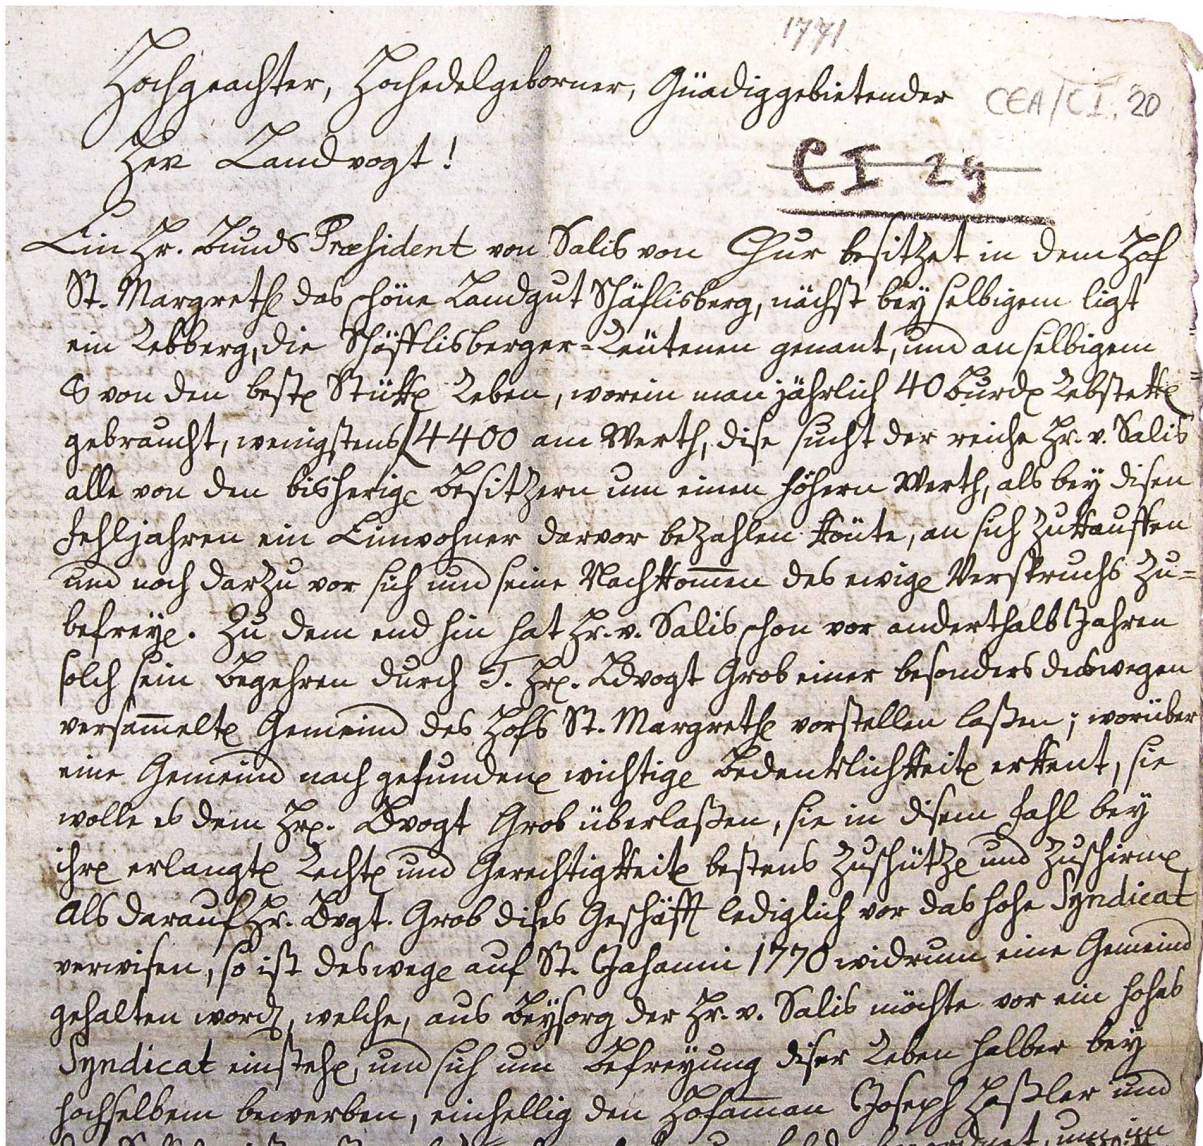 1771
Hochgeachter, Hochedelgeborner, Gnädiggebietender
CEA/CI. 20
Her Landvogt!
CI 29
Ein Hr. Bunds Præsident von Salis von Chur besitzet in dem Hof
St. Margrethe das schöne Landgut Schäflisberg, nächst bey selbigem ligt
ein Rebberg, die Schöfflisberger=Leütenen genant, und an selbigem
8 von den beste Stükke Reben, worein man jährlich 40 Burde Rebstekke
gebraucht, wenigstens 4400 am Werth, dise sucht der reiche Hr. v. Salis
alle von den bisherige Besitzern um einen höhern Werth, als bey disen
Fehljahren ein Einwohner darvor bezahlen könte, an sich zukauffen
und noch darzu vor sich und seine Nachkom̄en des ewige Verspruchs zu=
befreye. Zu dem end hin hat Hr. v. Salis schon vor anderthalb Jahren
solch sein Begehren durch T. Hre. Ldvogt Grob einer besonders deswegen
versam̄elte Gemeind des Hofs St. Margrethe vorstellen laßen; worüber
eine Gemeind nach gefundene wichtige Bedenklichkeite erkent, sie
wolle es dem Hre. Ldvogt Grob überlaßen, sie in disem Fahl bey
ihre erlangte Rechte und Gerechtigkeite bestens zuschütze und zuschirme
Als darauf Hr. Ldvgt. Grob dises Geschäfft lediglich vor das hohe Syndicat
verwisen, so ist deswege auf St. Johanni 1770 widrum eine Gemeind
gehalten worde, welche, aus Beysorg der Hr. v. Salis möchte vor ein hohes
Syndicat einstehe, und sich um Befreyung diser Reben halber bey
hochselbem bewerben, einhellig den Hofaman Joseph Haßler und